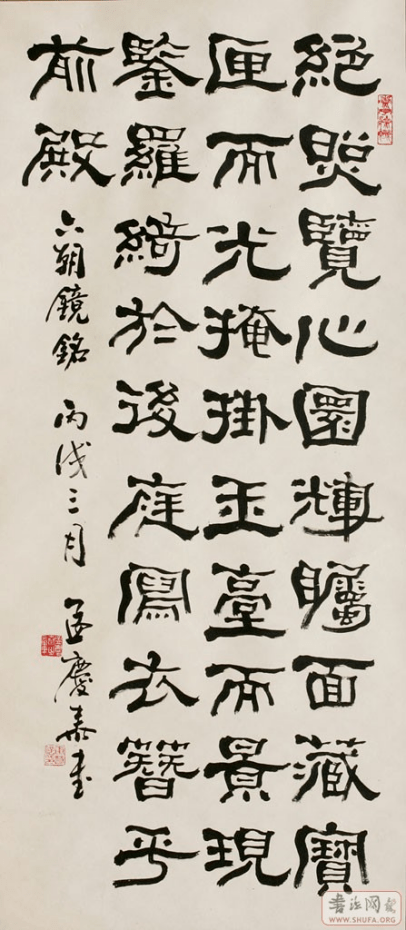 絕照覽心圓輝矚面藏寶
匣而光掩掛玉臺而景現
鑒羅綺於後庭寫衣簪乎
前殿
六朝鏡銘 丙戌三月 孟慶嘉書
WWW.SHUFA.ORG